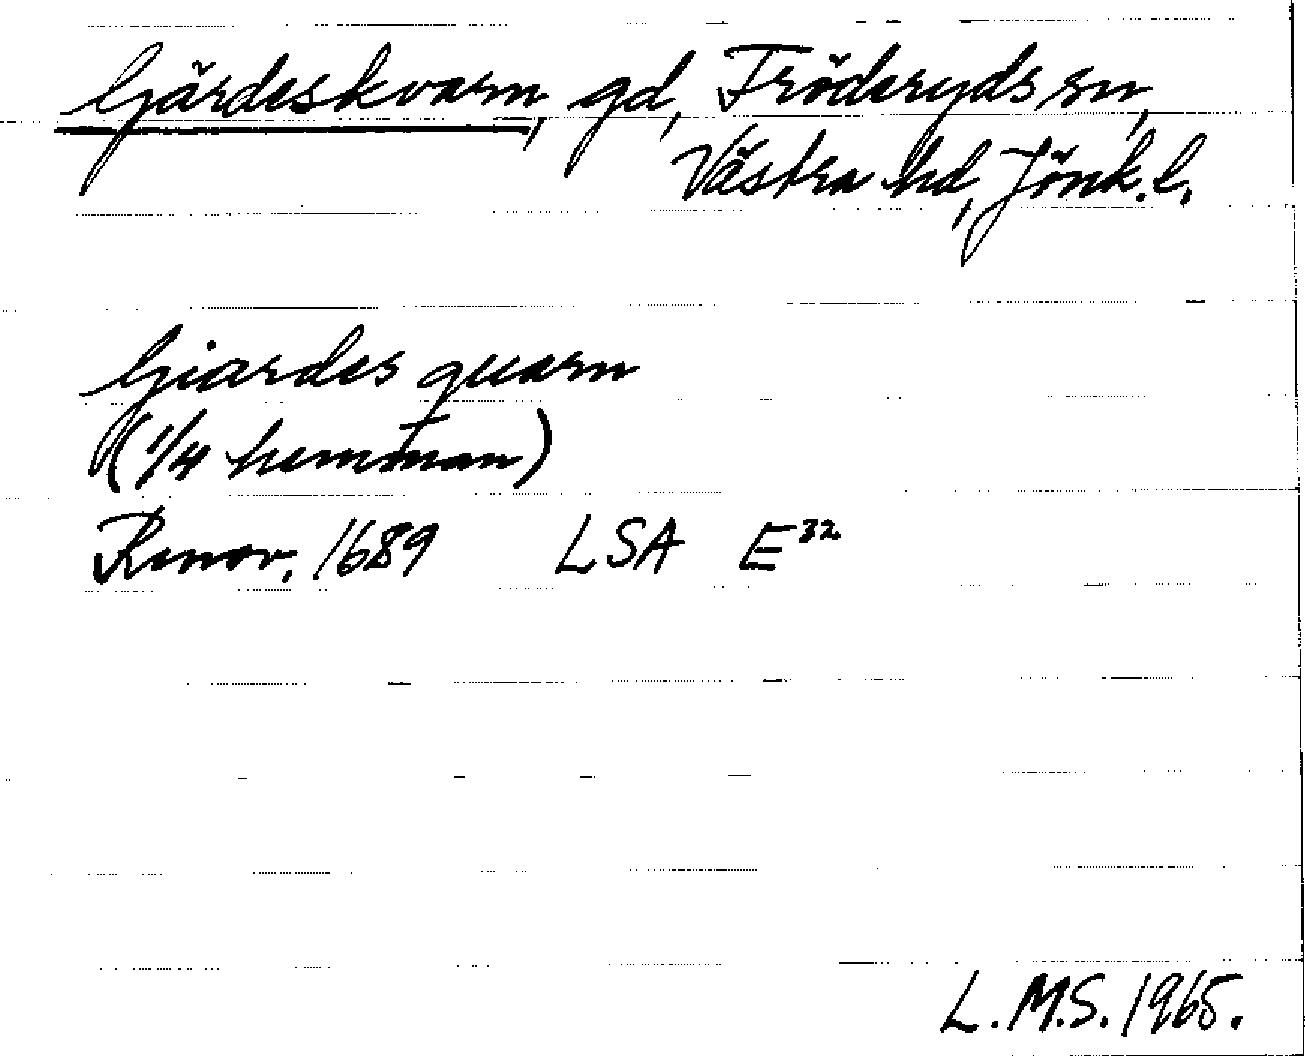 Gärdeskvarn, gd, Fröderyds sn,
Västra hd, Jönk. l.
Giardes quarn
(1/4 hemman)
Renov. 1689 LSA E³²
L.M.S. 1965.